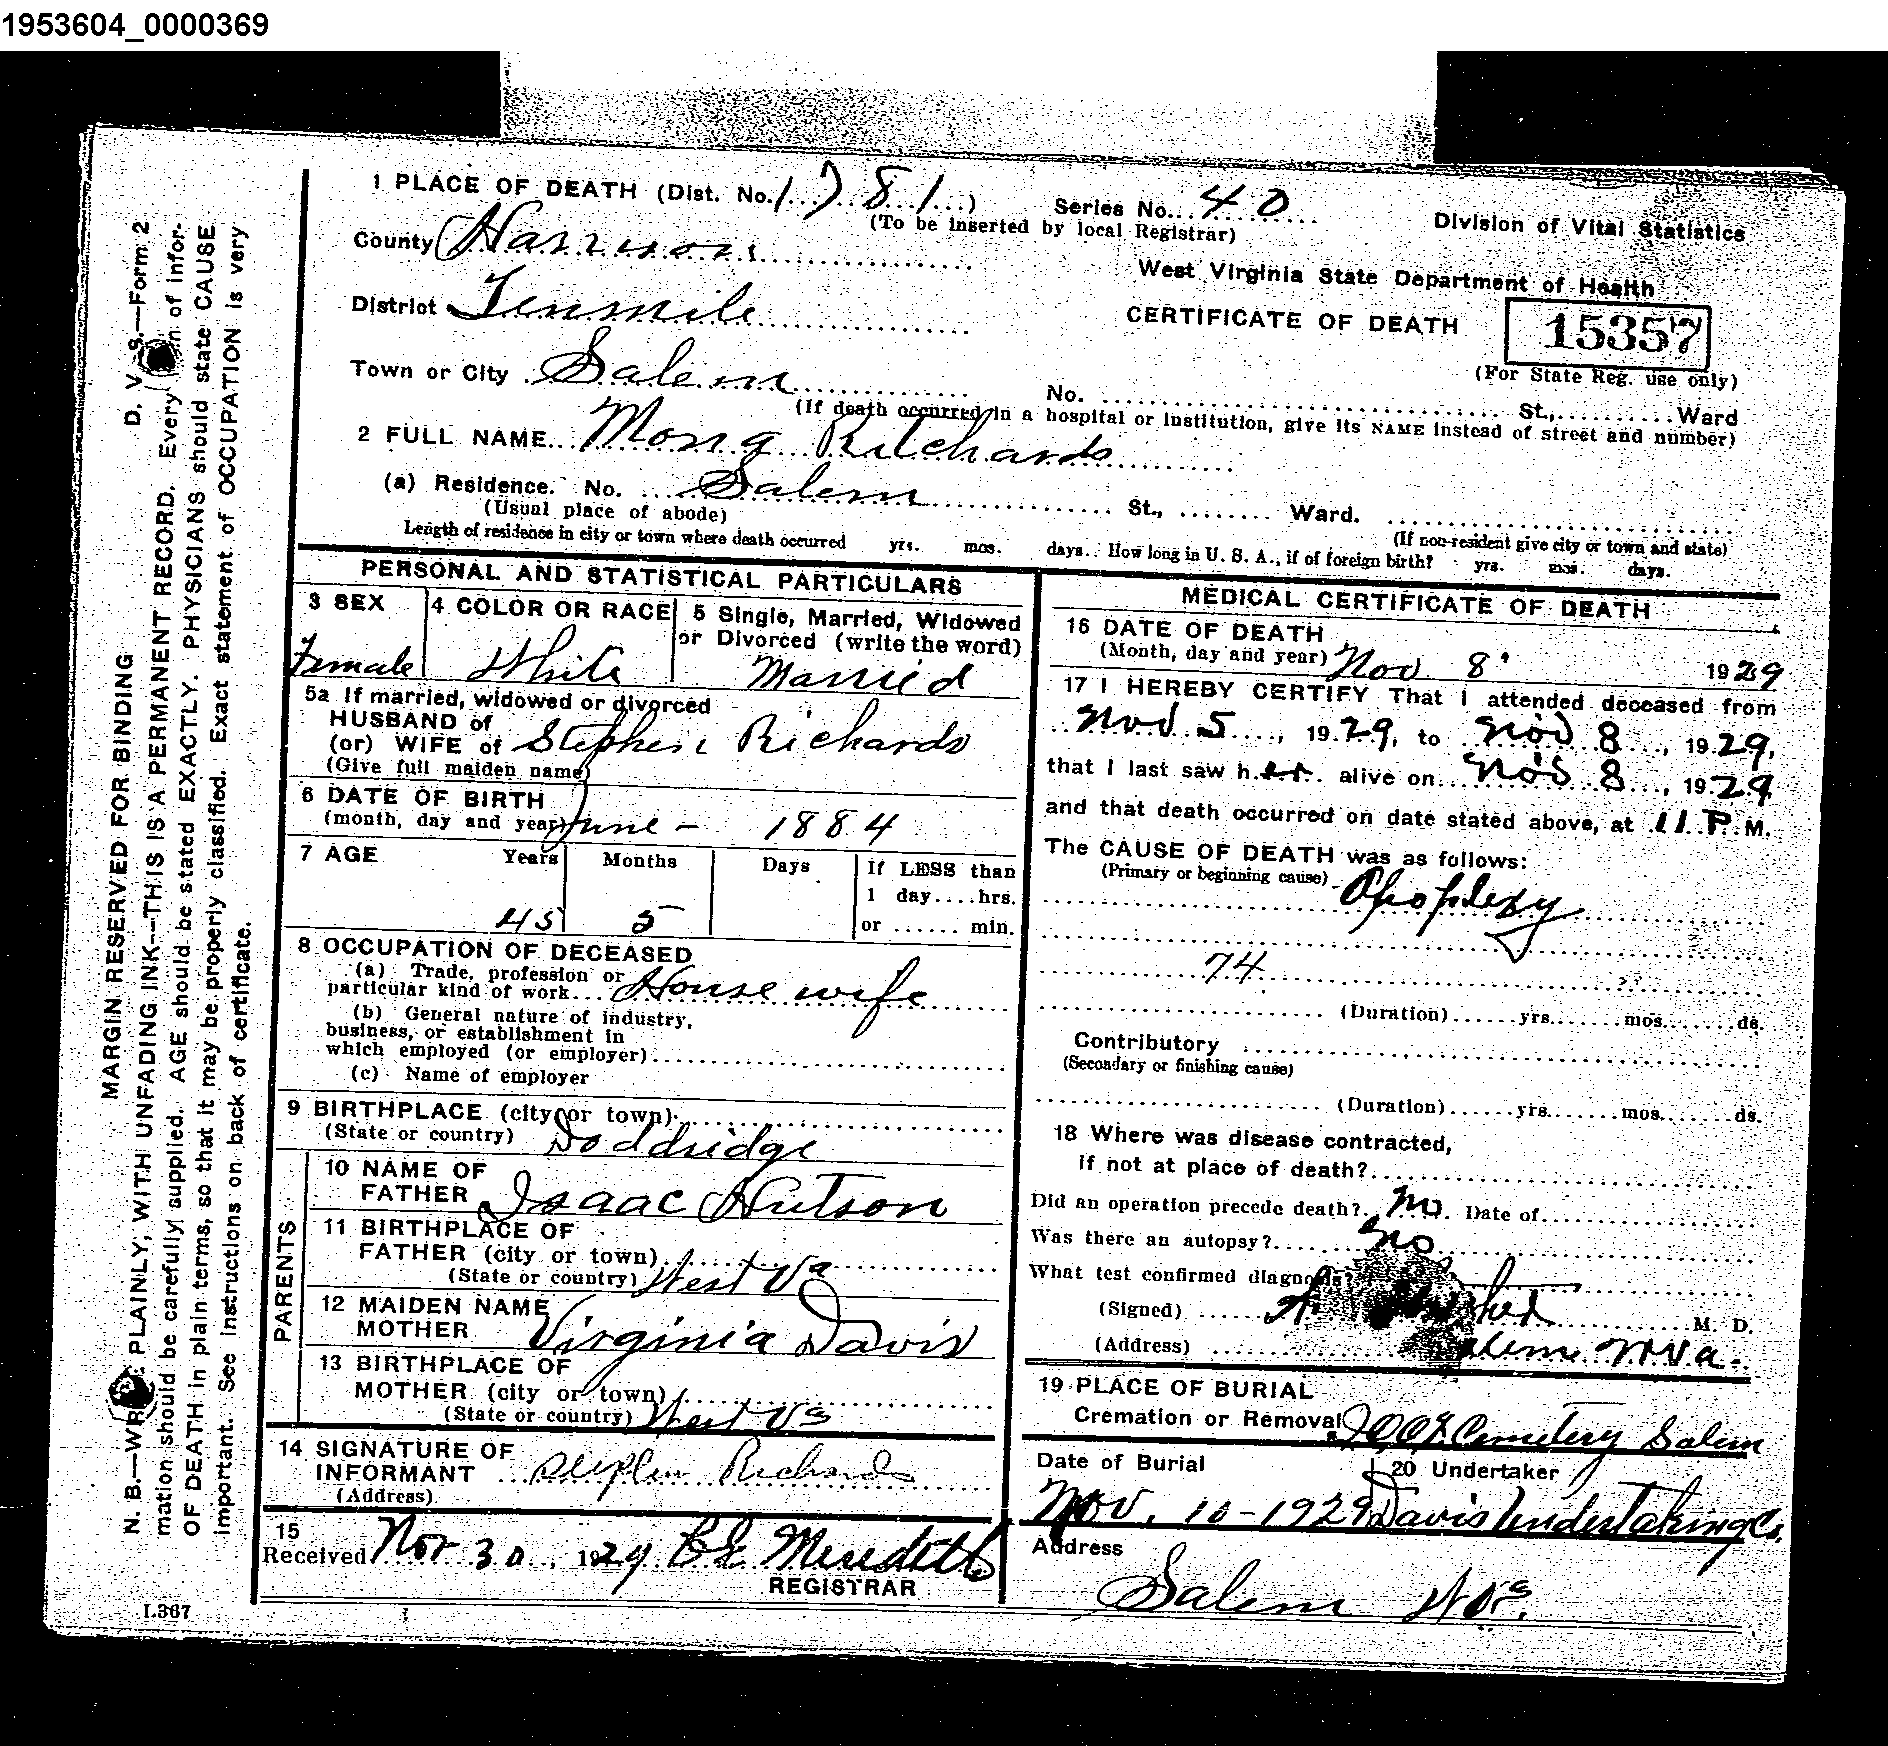 1953604_0000369
1 PLACE OF DEATH (Dist. No. 1781)
(To be inserted by local Registrar)
Series No. 40
Division of Vital Statistics
County Harrison
West Virginia State Department of Health
District Tenmile
CERTIFICATE OF DEATH
15357
(For State Reg. use only)
Town or City Salem
No. ........ St., ........ Ward
(If death occurred in a hospital or institution, give its NAME instead of street and number)
2 FULL NAME Mona Richards
(a) Residence. No. Salem St., ........ Ward.
(Usual place of abode)
(If non-resident give city or town and state)
Length of residence in city or town where death occurred yrs. mos. days. How long in U. S. A., if of foreign birth? yrs. mos. days.
PERSONAL AND STATISTICAL PARTICULARS
3 SEX
Female
4 COLOR OR RACE
White
5 Single, Married, Widowed
or Divorced (write the word)
Married
5a If married, widowed or divorced
HUSBAND of
(or) WIFE of Stephen Richards
(Give full maiden name)
6 DATE OF BIRTH
(month, day and year) June - 1884
7 AGE Years Months Days If LESS than
1 day....hrs.
45 5 or ...... min.
8 OCCUPATION OF DECEASED
(a) Trade, profession or
particular kind of work... House wife
(b) General nature of industry,
business, or establishment in
which employed (or employer)
(c) Name of employer
9 BIRTHPLACE (city or town)
(State or country) Doddridge
PARENTS
10 NAME OF
FATHER Isaac Hutson
11 BIRTHPLACE OF
FATHER (city or town)
(State or country) West Va
12 MAIDEN NAME
MOTHER Virginia Davis
13 BIRTHPLACE OF
MOTHER (city or town)
(State or country) West Va
14 SIGNATURE OF
INFORMANT Stephen Richards
(Address)
15
Received Nov 30, 1929 Meredith
REGISTRAR
L367
MEDICAL CERTIFICATE OF DEATH
16 DATE OF DEATH
(Month, day and year) Nov 8 1929
17 I HEREBY CERTIFY That I attended deceased from
Nov 5, 1929, to Nov 8, 1929,
that I last saw her alive on Nov 8, 1929
and that death occurred on date stated above, at 11 P. M.
The CAUSE OF DEATH was as follows:
(Primary or beginning cause)
Apoplexy
74
(Duration)......yrs.......mos.......ds.
Contributory
(Secondary or finishing cause)
(Duration)......yrs.......mos.......ds.
18 Where was disease contracted,
if not at place of death?
Did an operation precede death? No. Date of
Was there an autopsy? No
What test confirmed diagnosis?
(Signed) M. D.
(Address) Salem W Va.
19 PLACE OF BURIAL
Cremation or Removal IOOF Cemetery Salem
Date of Burial
Nov. 10-1929
20 Undertaker
Davis Undertaking Co.
Address
Salem W Va.
D. V. S.—Form 2
MARGIN RESERVED FOR BINDING
N. B.—WRITE PLAINLY, WITH UNFADING INK—THIS IS A PERMANENT RECORD. Every item of infor-
mation should be carefully supplied. AGE should be stated EXACTLY. PHYSICIANS should state CAUSE
OF DEATH in plain terms, so that it may be properly classified. Exact statement of OCCUPATION is very
important. See instructions on back of certificate.